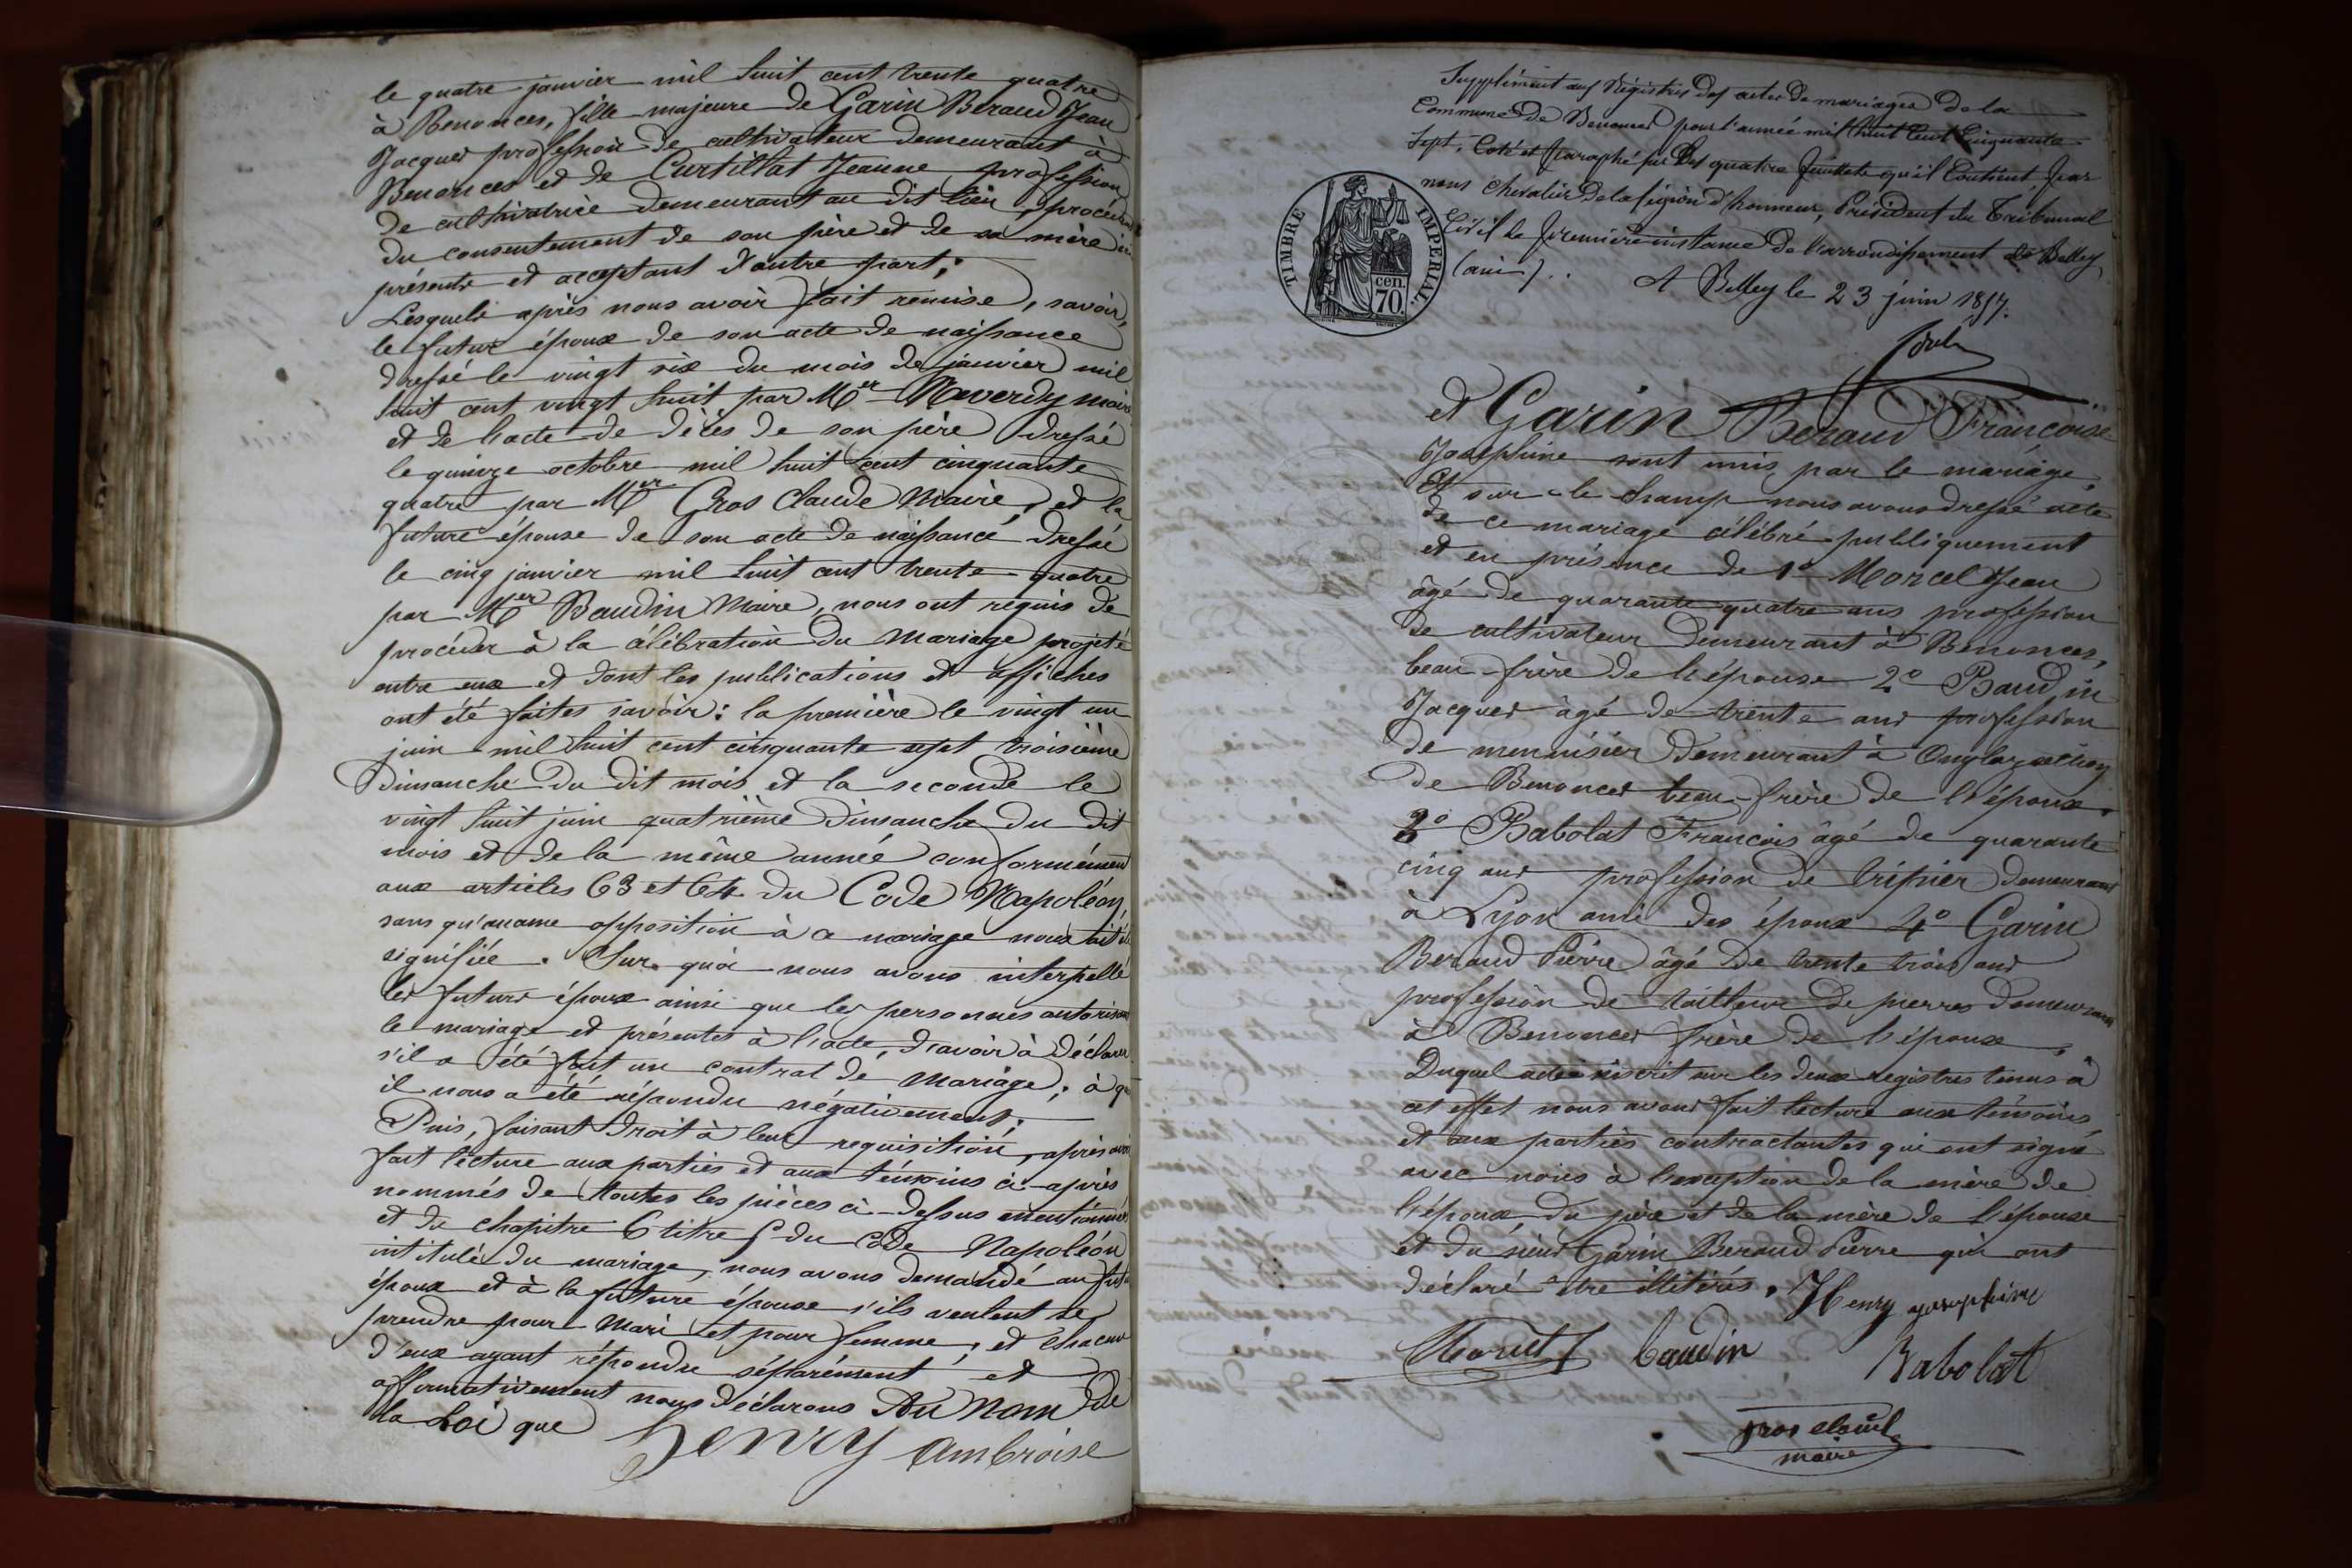 le quatre janvier mil huit cent trente quatre
à Benonces, fille majeure de Garin Beraud Jean
Jacques profession de cultivateur demeurant à
Benonces et de Curtillat Jeanne profession
de cultivatrice demeurant au dit lieu, procédant
du consentement de son père et de sa mère ici
présents et acceptant d'autre part;
Lesquels après nous avoir fait remise, savoir,
le futur époux de son acte de naissance
dressé le vingt six du mois de janvier mil
huit cent vingt huit par Mer Reverdy maire
et de l'acte de décès de son père dressé
le quinze octobre mil huit cent cinquante
quatre par Mer Gros Claude Maire, et la
future épouse de son acte de naissance dressé
le cinq janvier mil huit cent trente quatre
par Mer Baudin Maire, nous ont requis de
procéder à la célébration du Mariage projeté
entre eux et dont les publications et affiches
ont été faites savoir: la première le vingt un
juin mil huit cent cinquante sept troisième
Dimanche du dit mois et la seconde le
vingt huit juin quatrième Dimanche du dit
mois et de la même année conformément
aux articles 63 et 64 du Code Napoléon,
sans qu'aucune opposition à ce mariage nous ait été
signifiée. Sur quoi nous avons interpellé
les futurs époux ainsi que les personnes autorisant
le mariage et présentes à l'acte, d'avoir à déclarer
s'il a été fait un contrat de Mariage; à quoi
il nous a été répondu négativement;
Puis, faisant droit à leur requisition, après avoir
fait lecture aux parties et aux témoins ci-après
nommés de toutes les pièces ci-dessus mentionnées
et du chapitre 6 titre 5 du Code Napoléon
intitulé du mariage, nous avons demandé au futur
époux et à la future épouse s'ils veulent se
prendre pour Mari et pour femme, et chacun
d'eux ayant répondu séparément et
affirmativement nous déclarons Au Nom de
la Loi que Henry Ambroise
Supplément aux Régistres des actes de mariages de la
Commune de Benonces pour l'année mil huit Cent Cinquante
Sept. Coté et paraphé sur les quatre feuillets qu'il Contient, par
nous Chevalier De la Légion d'honneur, Président du Tribunal
Civil de Première instance De l'arrondissement de Belley
(ain).
A Belley le 23 juin 1857.
TIMBRE IMPERIAL.
cen.
70.
et Garin Beraud Françoise
Josephine sont unis par le mariage,
Et sur-le-champ nous avons dressé acte
de ce mariage célébré publiquement
et en présence de 1º Morcel Jean
âgé de quarante quatre ans profession
de cultivateur Demeurant à Benonces,
beau-frère de l'épouse 2º Baudin
Jacques âgé de trente ans profession
de menuisier Demeurant à
de Benonces beau-frère de l'époux.
3º Babolat François âgé de quarante
cinq ans profession de tripier demeurant
à Lyon ami des époux 4º Garin
Beraud Pierre âgé de trente trois ans
profession de tailleur de pierres demeurant
à Benonces frère de l'épouse.
Duquel acte inscrit sur les deux registres tenus à
cet effet nous avons fait lecture aux témoins
et aux parties contractantes qui ont signé
avec nous à l'exception de la mère de
l'époux, du père et de la mère de l'épouse
et du sieur Garin Beraud Pierre qui ont
déclaré être illitérés. Henry josephine
baudin Babolat
gros claude
maire